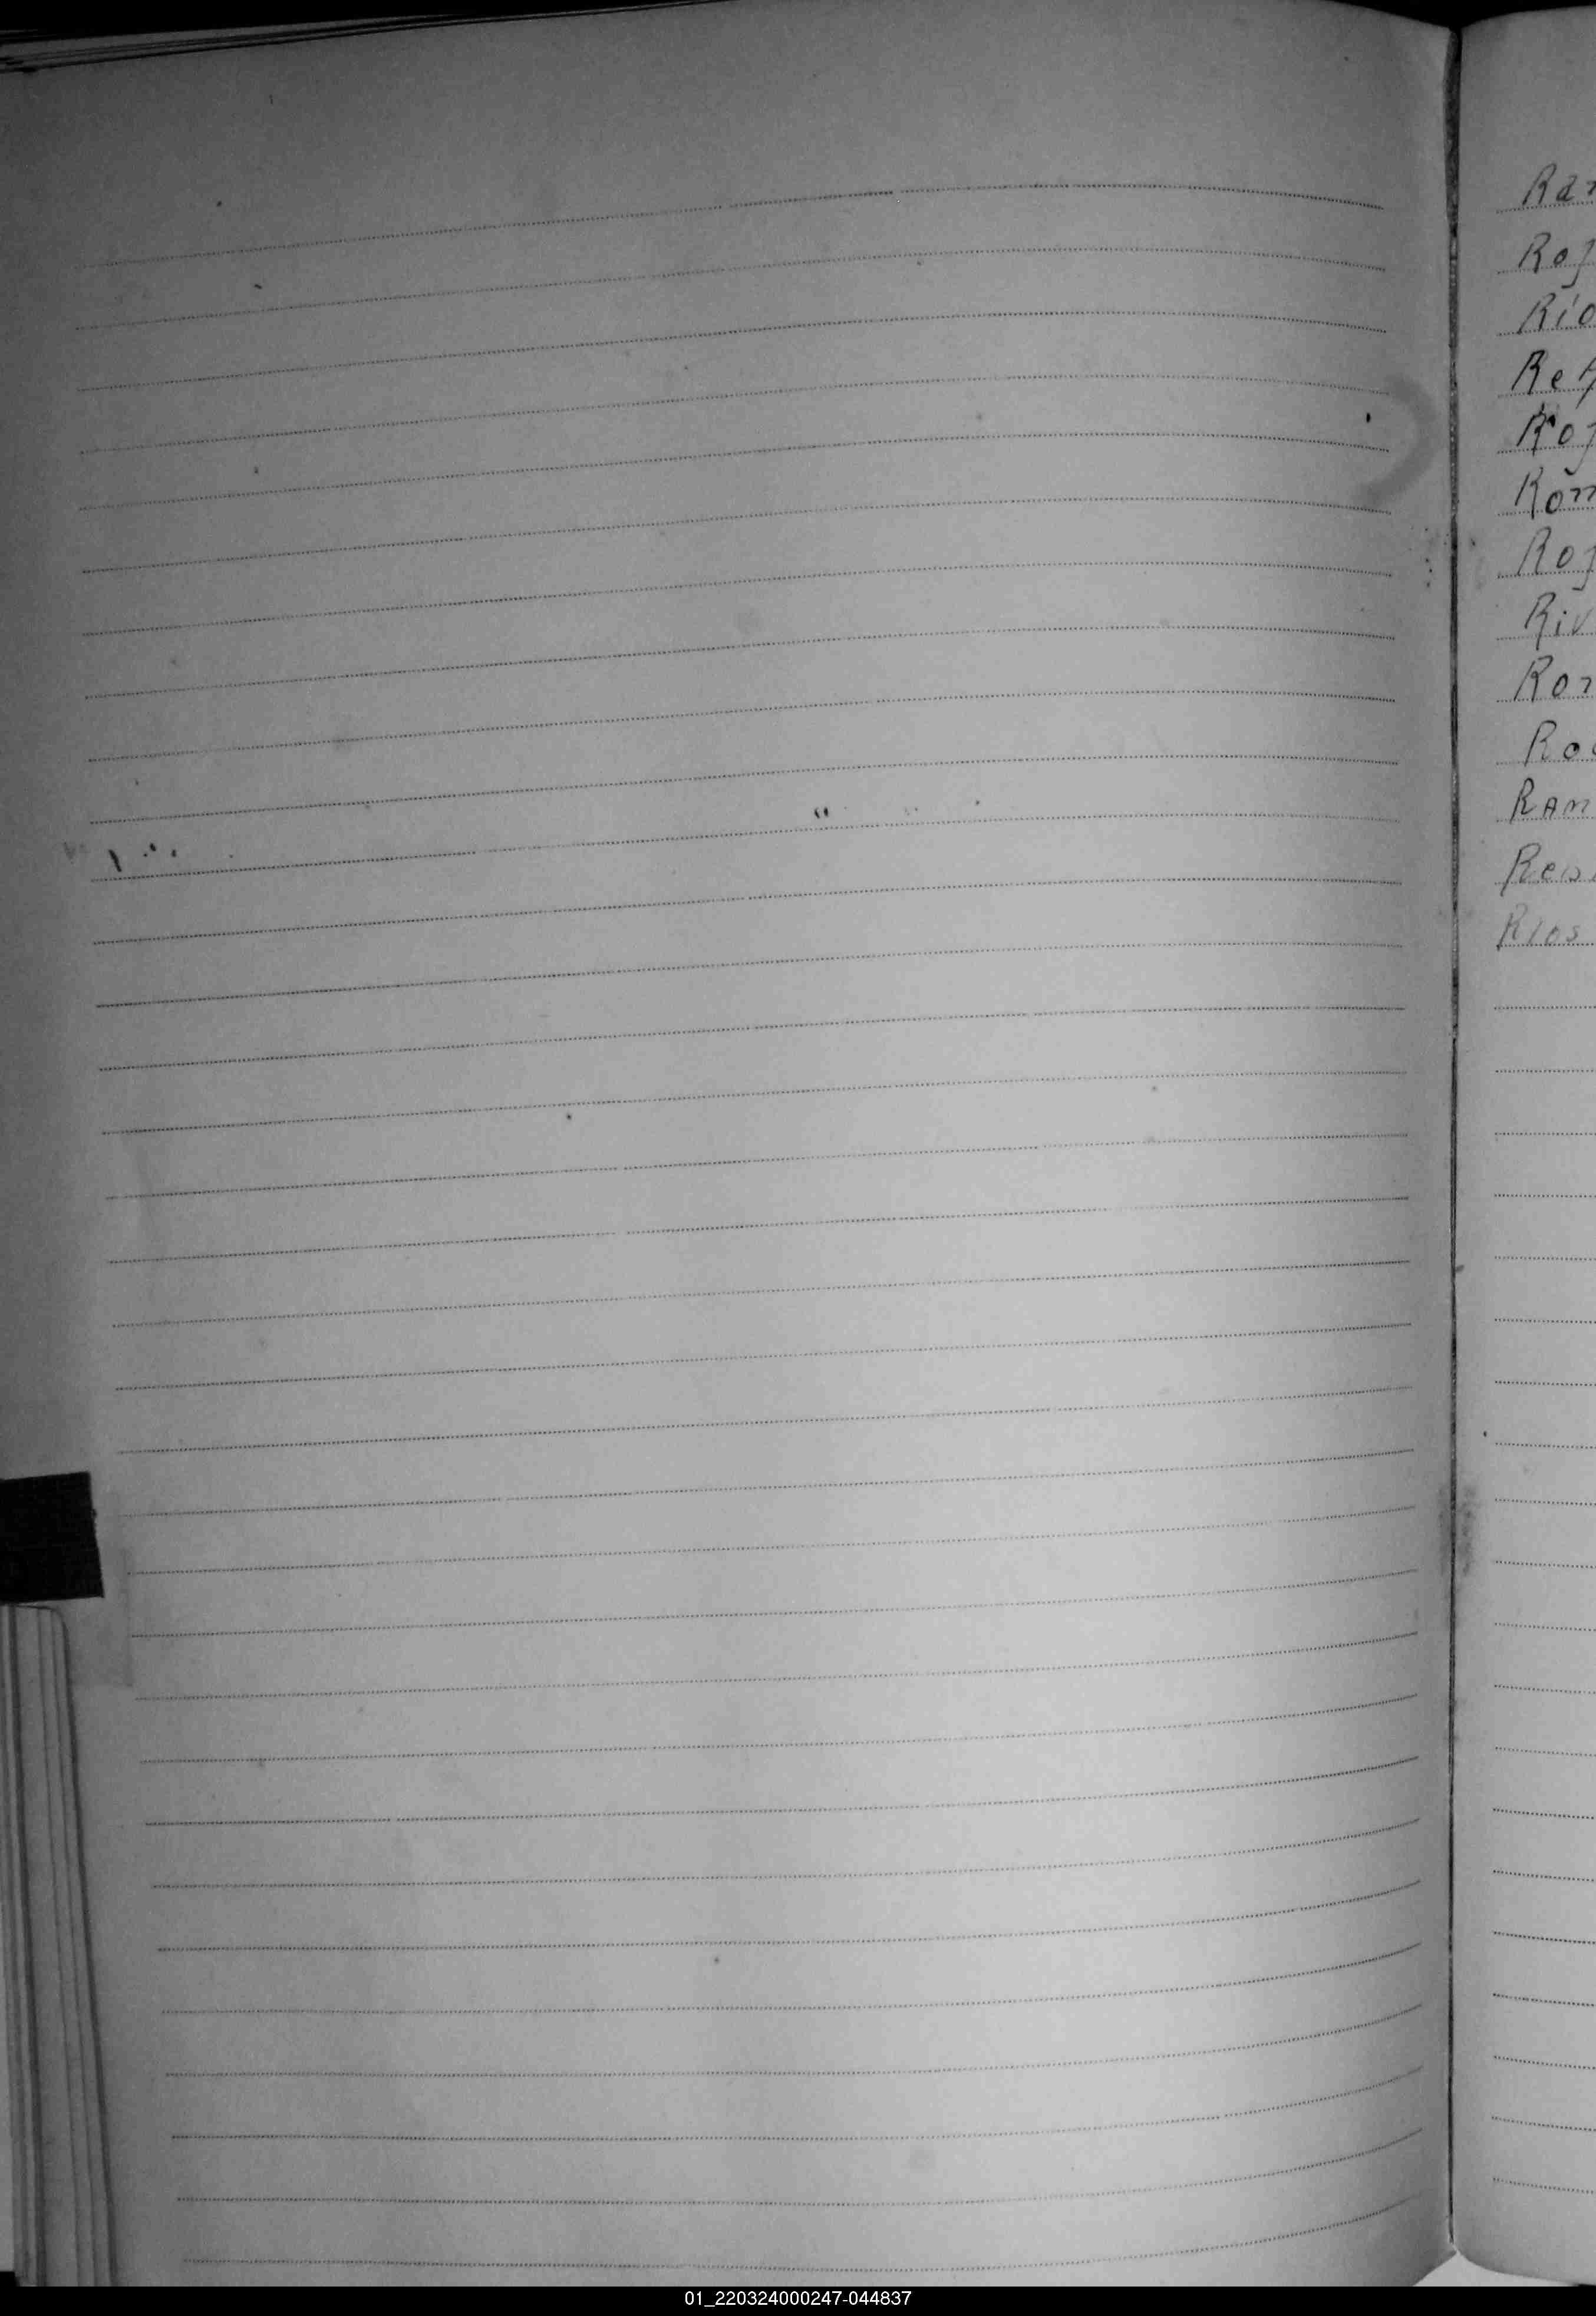 Ram
Roj
Río
Rey
Roj
Rom
Roj
Riv
Rom
Ro
RAM
Reis
RIOS
01_220324000247-044837